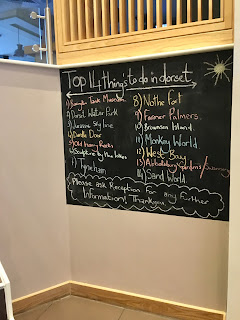 Top 14 things to do in dorset
1) Bovington Tank Museum
2) Dorset Water Park
3) Jurassic Skyline
4) Durdle Door
5) Old Harry Rocks
6) Sculpture by the lakes
7) Tyneham
8) Nothe Fort
9) Farmer Palmers.
10) Brownsea Island.
11) Monkey World
12) West Bay
13) Abbotsbury Gardens /
14) Sand World.
Please ask Reception for any further
Information! Thankyou.